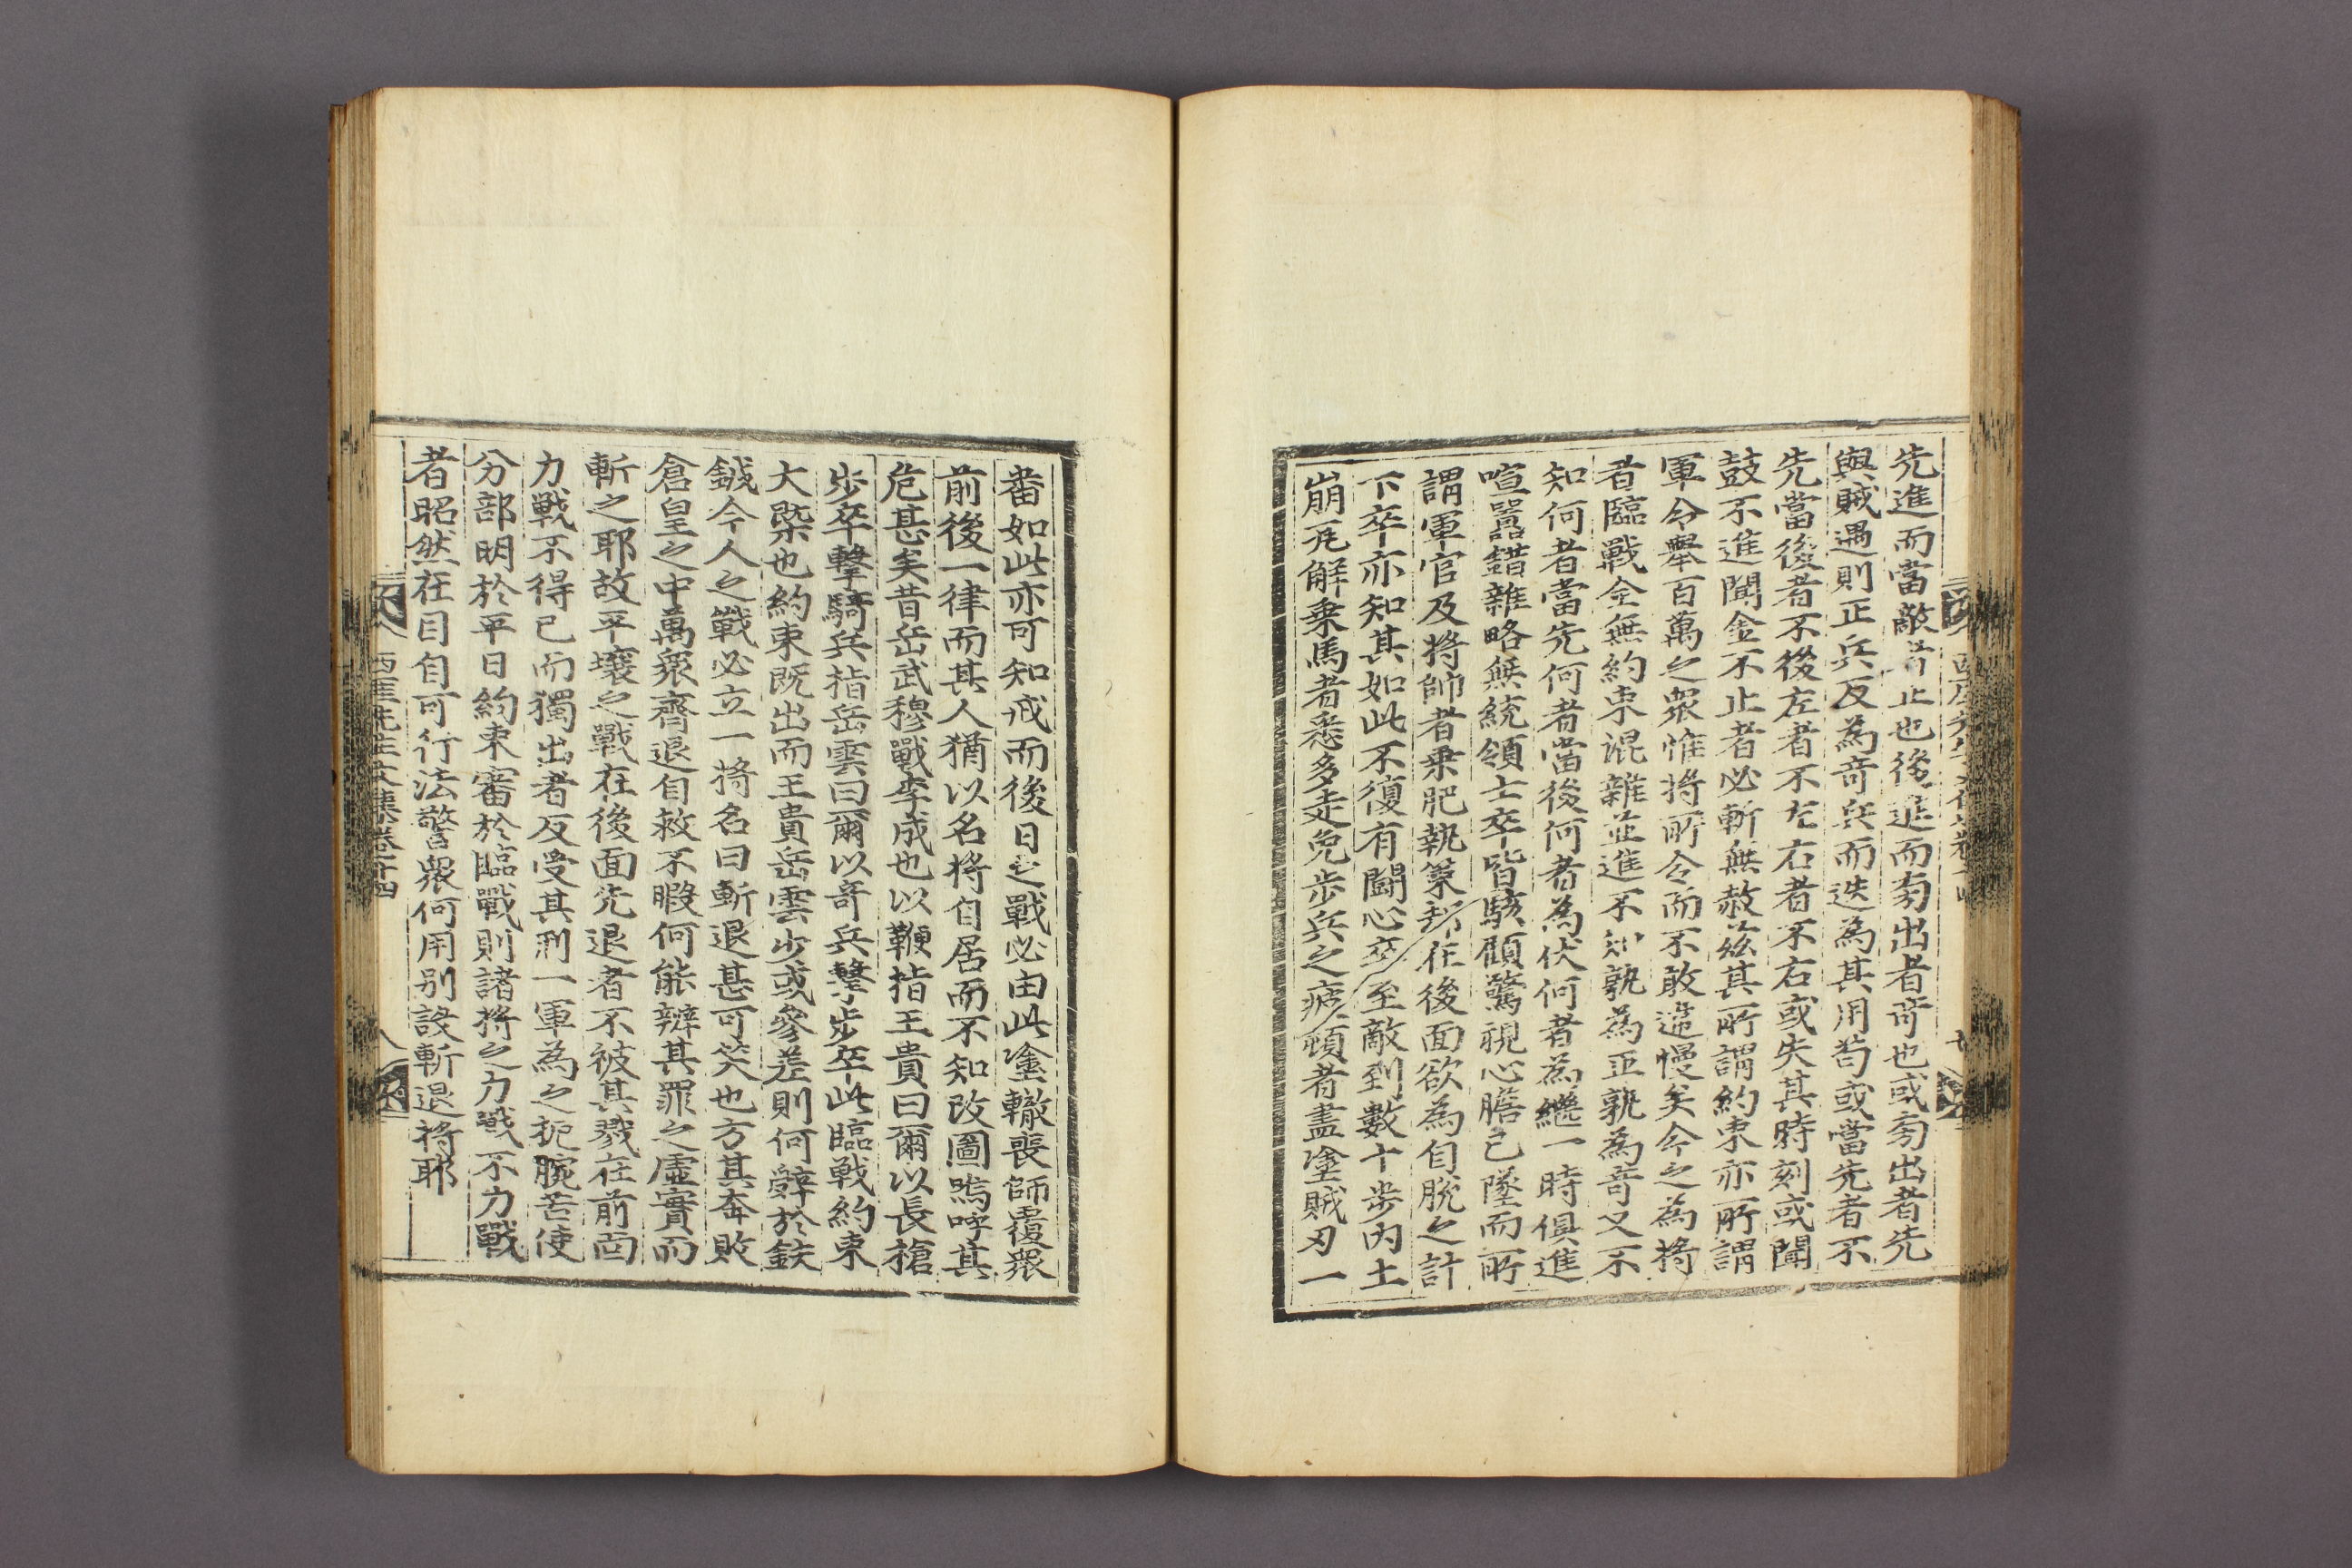 先進而當敵者正也後進而旁出者奇也或旁出者先
與賊遇則正兵反為奇兵而迭為其用苟或當先者不
先當後者不後左者不左右者不右或失其時刻或聞
鼓不進聞金不止者必斬無赦玆其所謂約束亦所謂
軍令擧百萬之衆惟將所令而不敢違慢矣今之為將
者臨戰全無約束混雜並進不知孰為正孰為奇又不
知何者當先何者當後何者為伏何者為繼一時俱進
喧囂錯雜略無統領士卒皆駭顧驚視心膽已墜而所
謂軍官及將帥者乘肥執策却在後面欲為自脫之計
下卒亦知其如此不復有鬪心卒至敵到數十步內土
崩瓦解乘馬者悉多走免步兵之疲頓者盡塗賊刃一
番如此亦可知戒而後日之戰必由此塗轍喪師覆衆
前後一律而其人猶以名將自居而不知改圖嗚呼其
危甚矣昔岳武穆戰李成也以鞭指王貴曰爾以長槍
步卒擊騎兵指岳雲曰爾以奇兵擊步卒此臨戰約束
大槩也約束旣出而王貴岳雲少或參差則何辭於鈇
鉞今人之戰必立一將名曰斬退甚可笑也方其奔敗
倉皇之中萬衆齊退自救不暇何能辨其罪之虛實而
斬之耶故平壤之戰在後面先退者不被其戮在前面
力戰不得已而獨出者反受其刑一軍為之扼腕苦使
分部明於平日約束審於臨戰則諸將之力戰不力戰
者昭然在目自可行法警衆何用別設斬退將耶
西厓先生文集卷十四
八